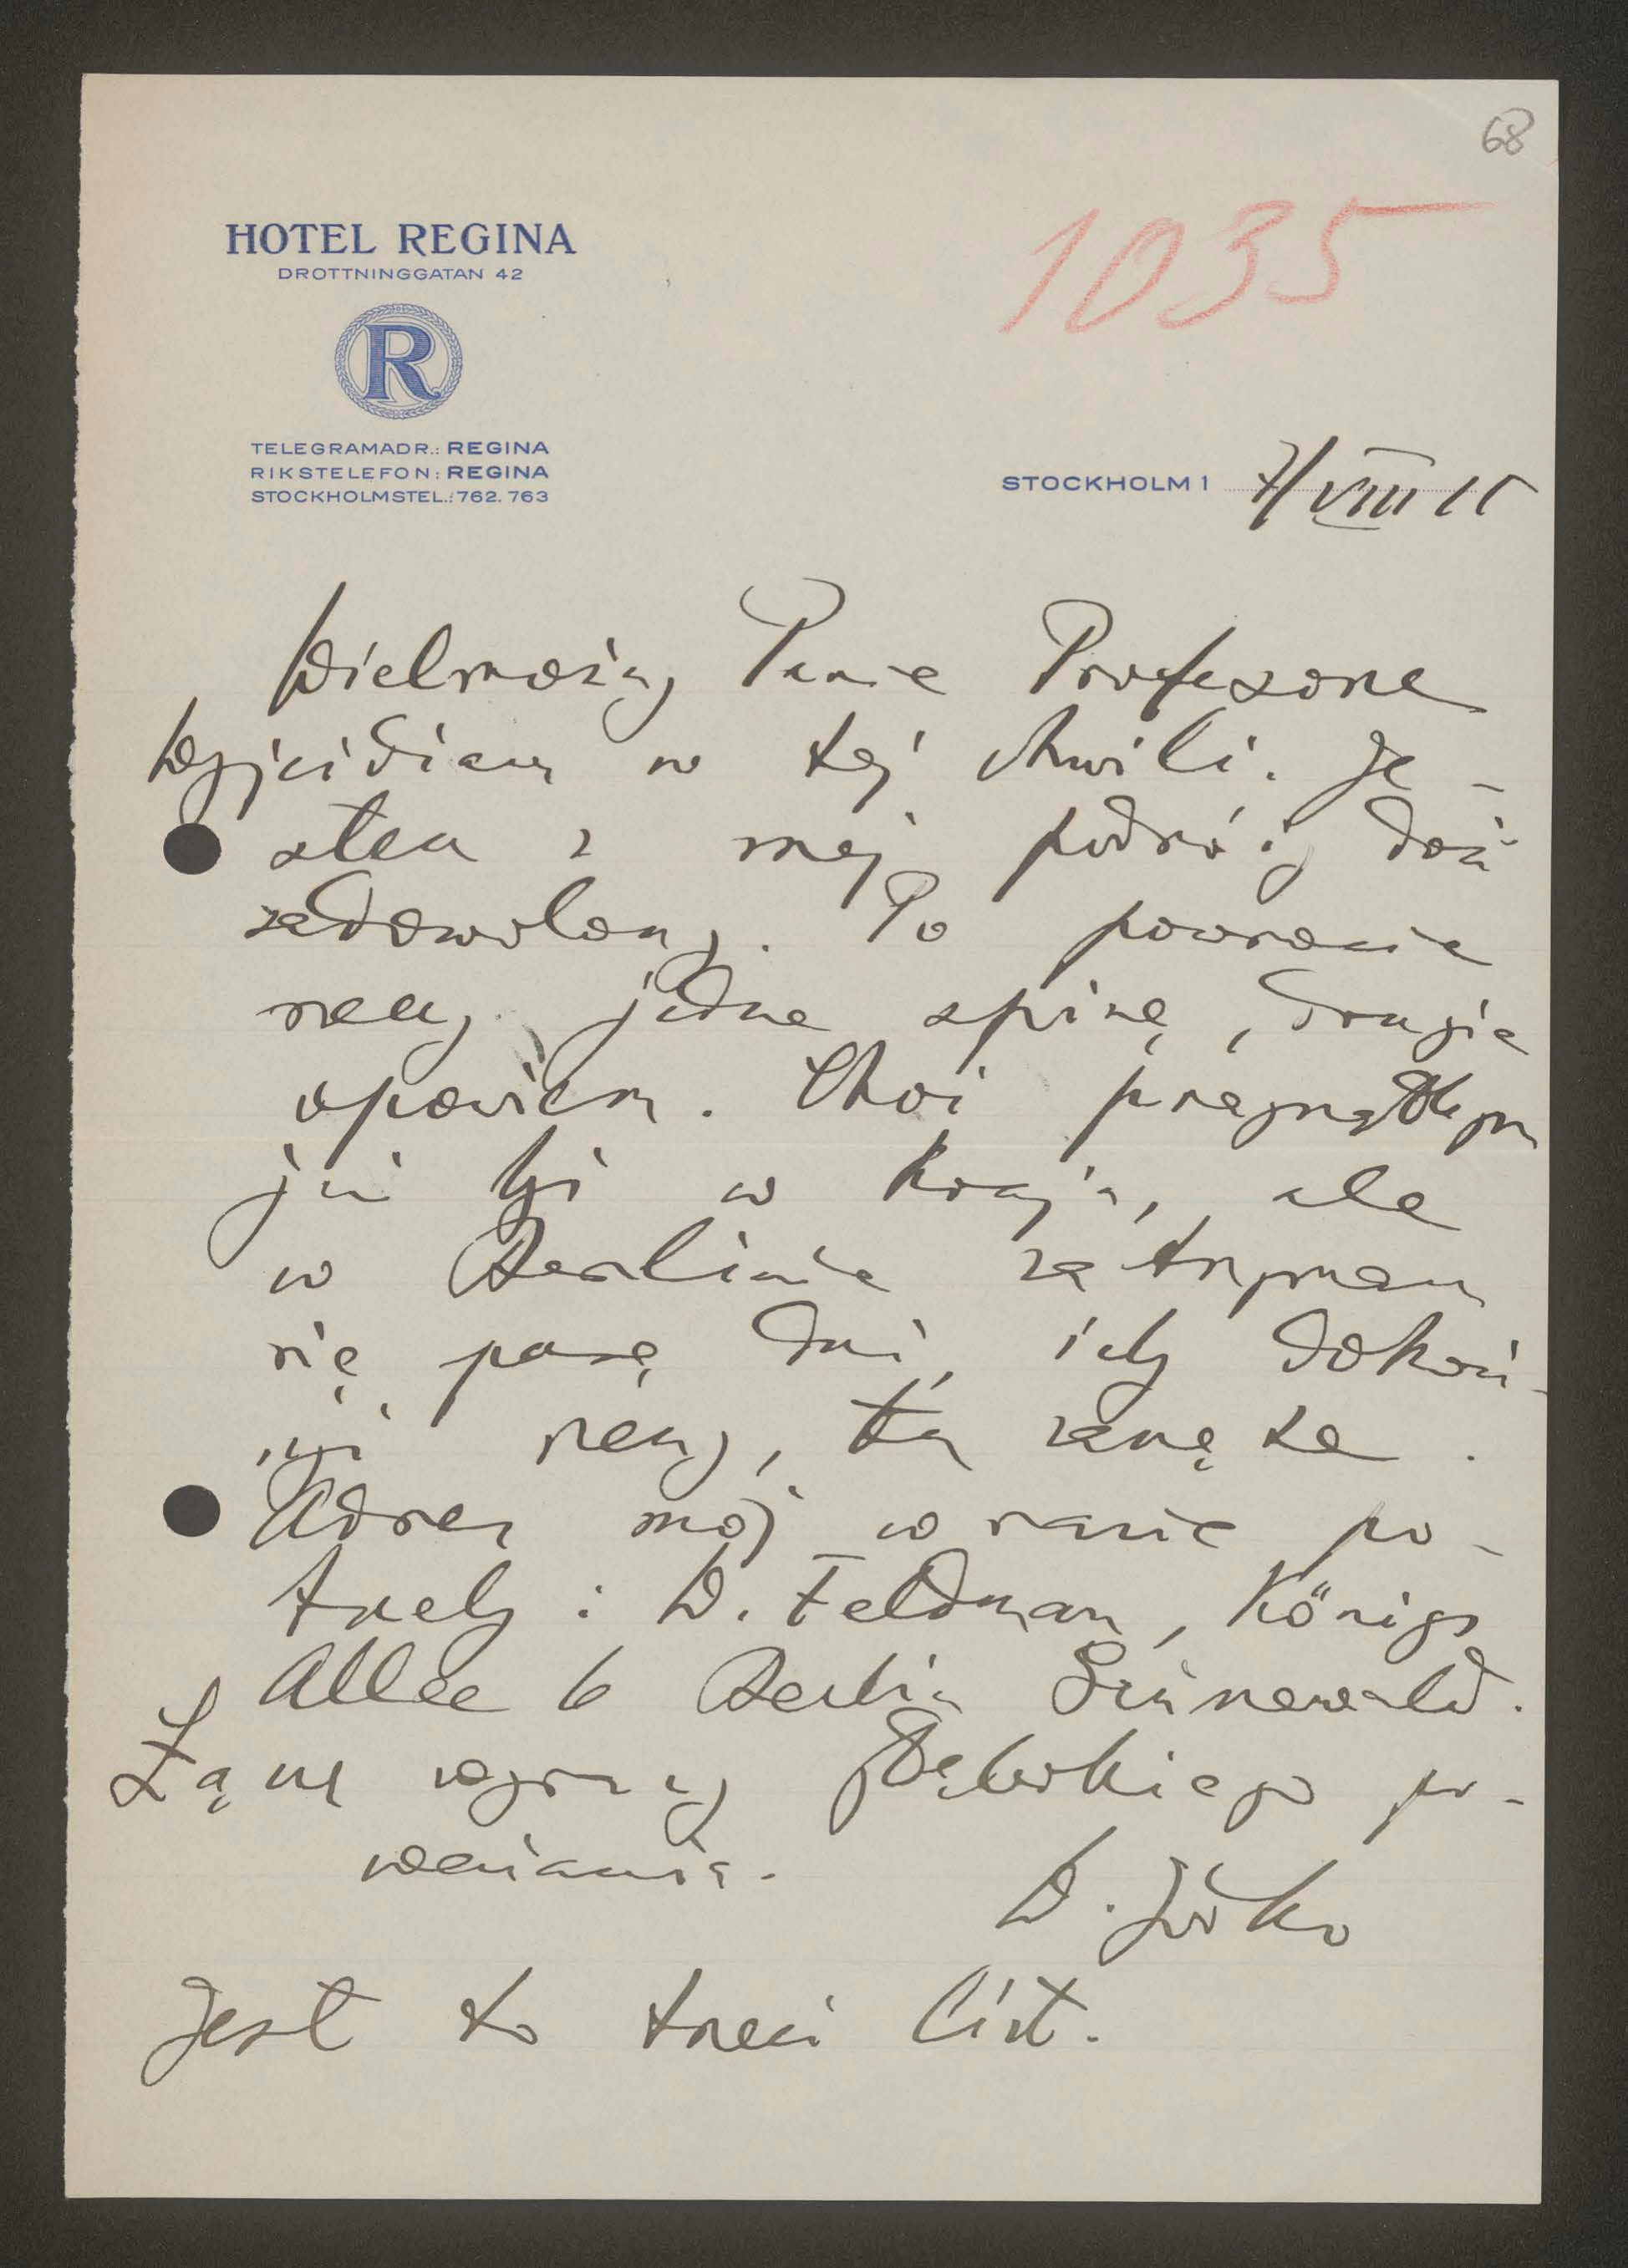 68
1035
HOTEL REGINA
DROTTNINGGATAN 42
R
TELEGRAMADR.: REGINA
RIKSTELEFON: REGINA
STOCKHOLMSTEL.: 762. 763
STOCKHOLM 1 7/VIII 15
Wielmożny Panie Profesorze
Wyjeżdżam w tej chwili. Je-
stem z mej podróży dość
zadowolony. Po powrocie
rzeczy jedne spiszę, drugie
opowiem. Choć pragnąłbym
już być w kraju, ale
w Berlinie zatrzymam
się parę dni, by dokoń-
czyć rzeczy, tu zaczęte.
Adres mój w razie po-
trzeby: W. Feldman, Königs
Allee 6 Berlin Grunewald.
Łączę wyrazy głębokiego po-
ważania.
W. Jodko
Jest to trzeci list.